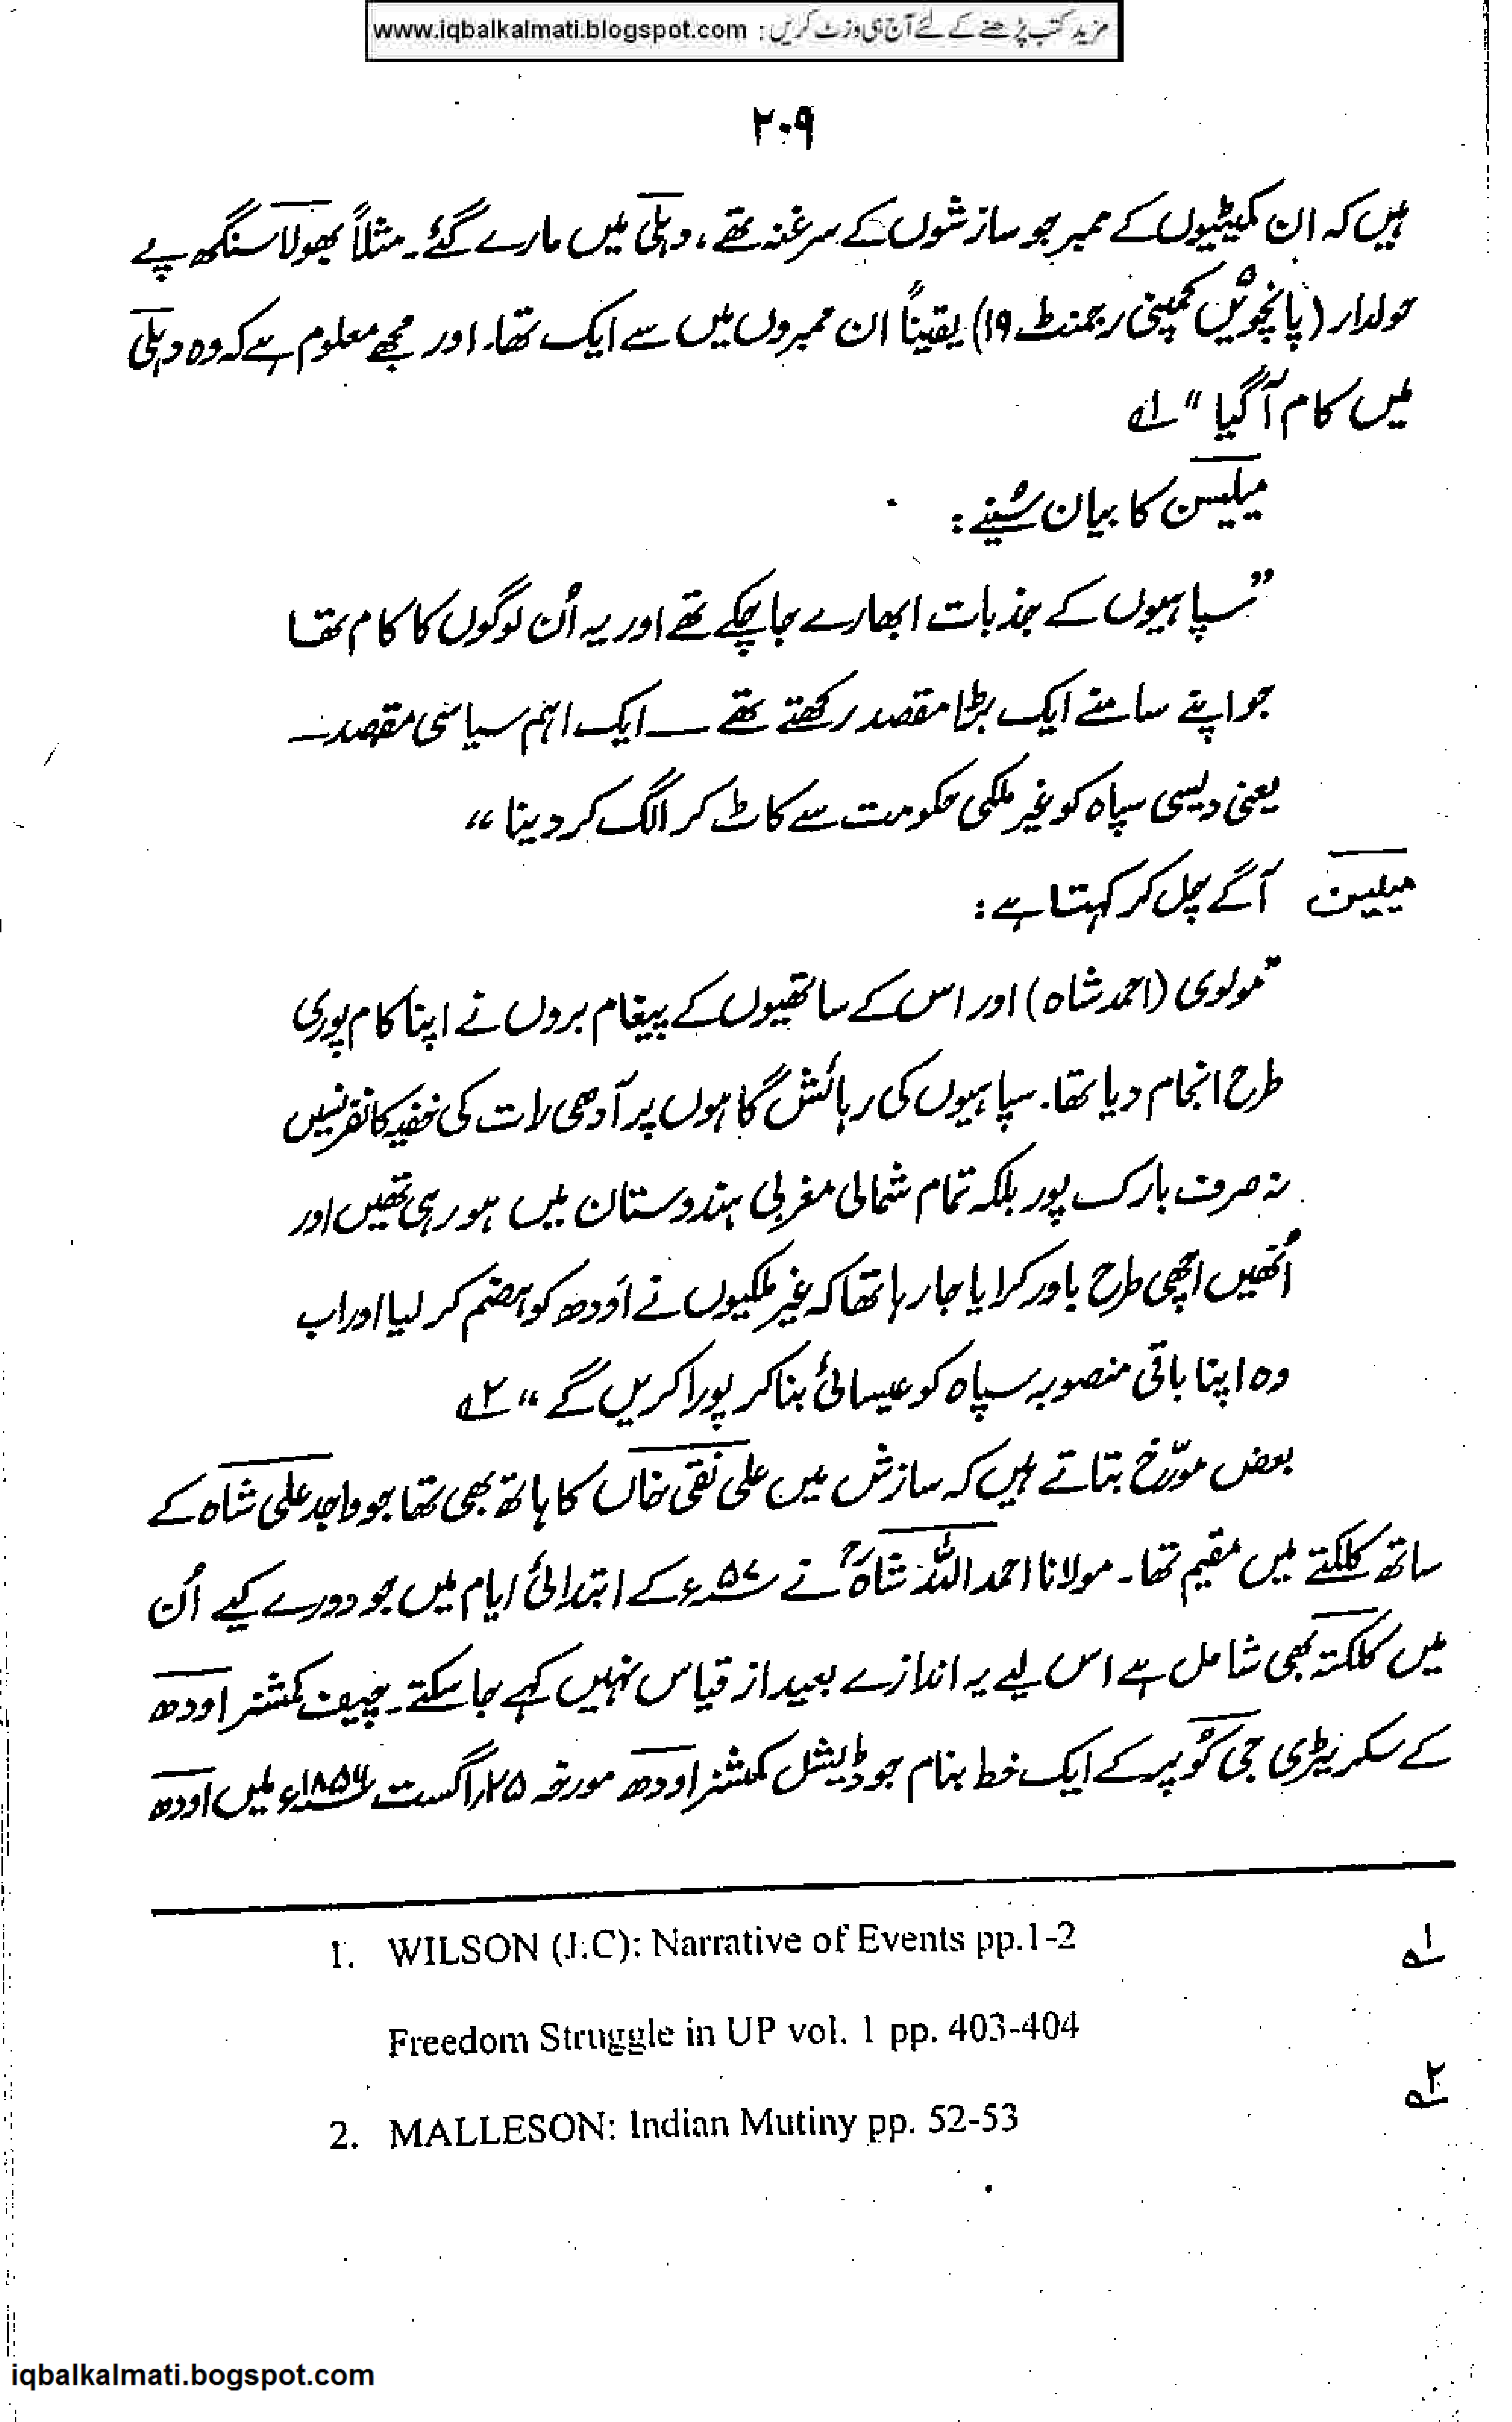 مزید کتب پڑھنے کے لئے آج ہی وزٹ کریں : www.iqbalkalmati.blogspot.com
۲۰۹
ہیں کہ ان کمیٹیوں کے ممبر جو سازشوں کے سرغنہ تھے، دہلی میں مارے گئے۔ مثلاً بھولا سنگھ پے
حولدار (پانچویں کمپنی رجمنٹ ۱۹) یقیناً ان ممبروں میں سے ایک تھا۔ اور مجھے معلوم ہے کہ وہ دہلی
میں کام آگیا" ۱ے
میلیسن کا بیان سُنیے :
"سپاہیوں کے جذبات ابھارے جاچکے تھے اور یہ اُن لوگوں کا کام تھا
جو اپنے سامنے ایک بڑا مقصد رکھتے تھے — ایک اہم سیاسی مقصد —
یعنی دیسی سپاہ کو غیر ملکی حکومت سے کاٹ کر الگ کر دینا"
میلیسن آگے چل کر کہتا ہے :
"مولوی (احمد شاہ) اور اس کے ساتھیوں کے پیغام بروں نے اپنا کام پوری
طرح انجام دیا تھا۔ سپاہیوں کی رہائش گاہوں پر آدھی رات کی خفیہ کانفرنسیں
نہ صرف بارک پور بلکہ تمام شمالی مغربی ہندوستان میں ہو رہی تھیں اور
اُنھیں اچھی طرح باور کرایا جا رہا تھا کہ غیر ملکیوں نے اَودھ کو ہضم کر لیا اور اب
وہ اپنا باقی منصوبہ سپاہ کو عیسائی بنا کر پورا کریں گے" ۲ے
بعض مورّخ بتاتے ہیں کہ سازش میں علی نقی خاں کا ہاتھ بھی تھا جو واجد علی شاہ کے
ساتھ کلکتے میں مقیم تھا۔ مولانا احمد اللہ شاہؒ نے ۵۷ء کے ابتدائی ایام میں جو دورے کیے اُن
میں کلکتہ بھی شامل ہے اس لیے یہ اندازے بعید از قیاس نہیں کہے جاسکتے۔ چیف کمشنر اودھ
کے سکریٹری جی کُوپر کے ایک خط بنام جوڈیشل کمشنر اودھ مورخہ ۲۵ر اگست ۱۸۵۶ء میں اودھ
1. WILSON (J.C): Narrative of Events pp.1-2 ۱ے
Freedom Struggle in UP vol. 1 pp. 403-404
2. MALLESON: Indian Mutiny pp. 52-53 ۲ے
iqbalkalmati.bogspot.com